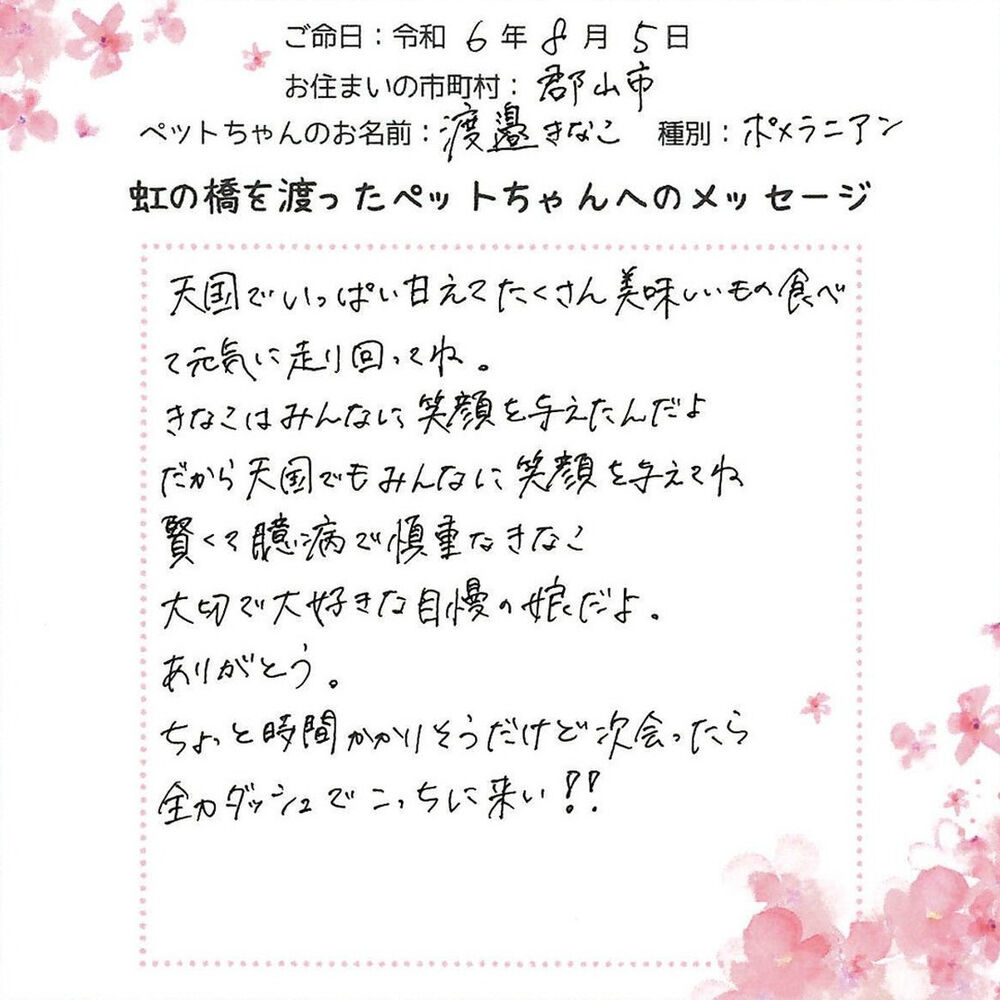 ご命日：令和 6 年 8 月 5 日
お住まいの市町村：郡山市
ペットちゃんのお名前：渡邉きなこ　種別：ポメラニアン
虹の橋を渡ったペットちゃんへのメッセージ
天国でいっぱい甘えてたくさん美味しいもの食べ
て元気に走り回ってね。
きなこはみんなに笑顔を与えたんだよ
だから天国でもみんなに笑顔を与えてね
賢くて臆病で慎重なきなこ
大切で大好きな自慢の娘だよ。
ありがとう。
ちょっと時間かかりそうだけど次会ったら
全力ダッシュでこっちに来い!!